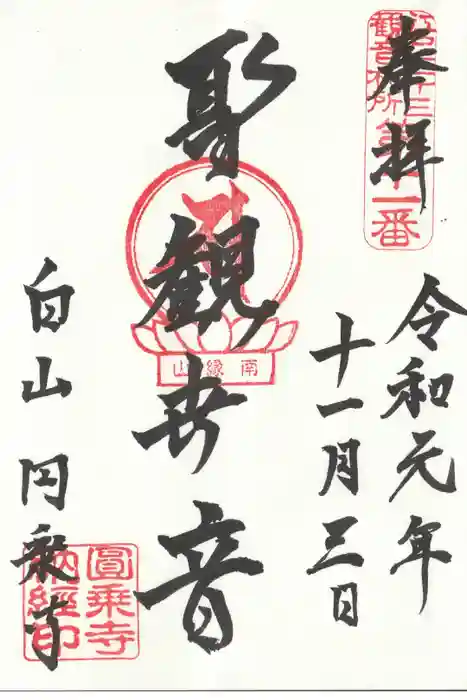 奉拝
江戸三十三
観音札所
第十一番
令和元年
十一月三日
聖観世音
南縁山
白山 円乗寺
圓乗寺
納経印